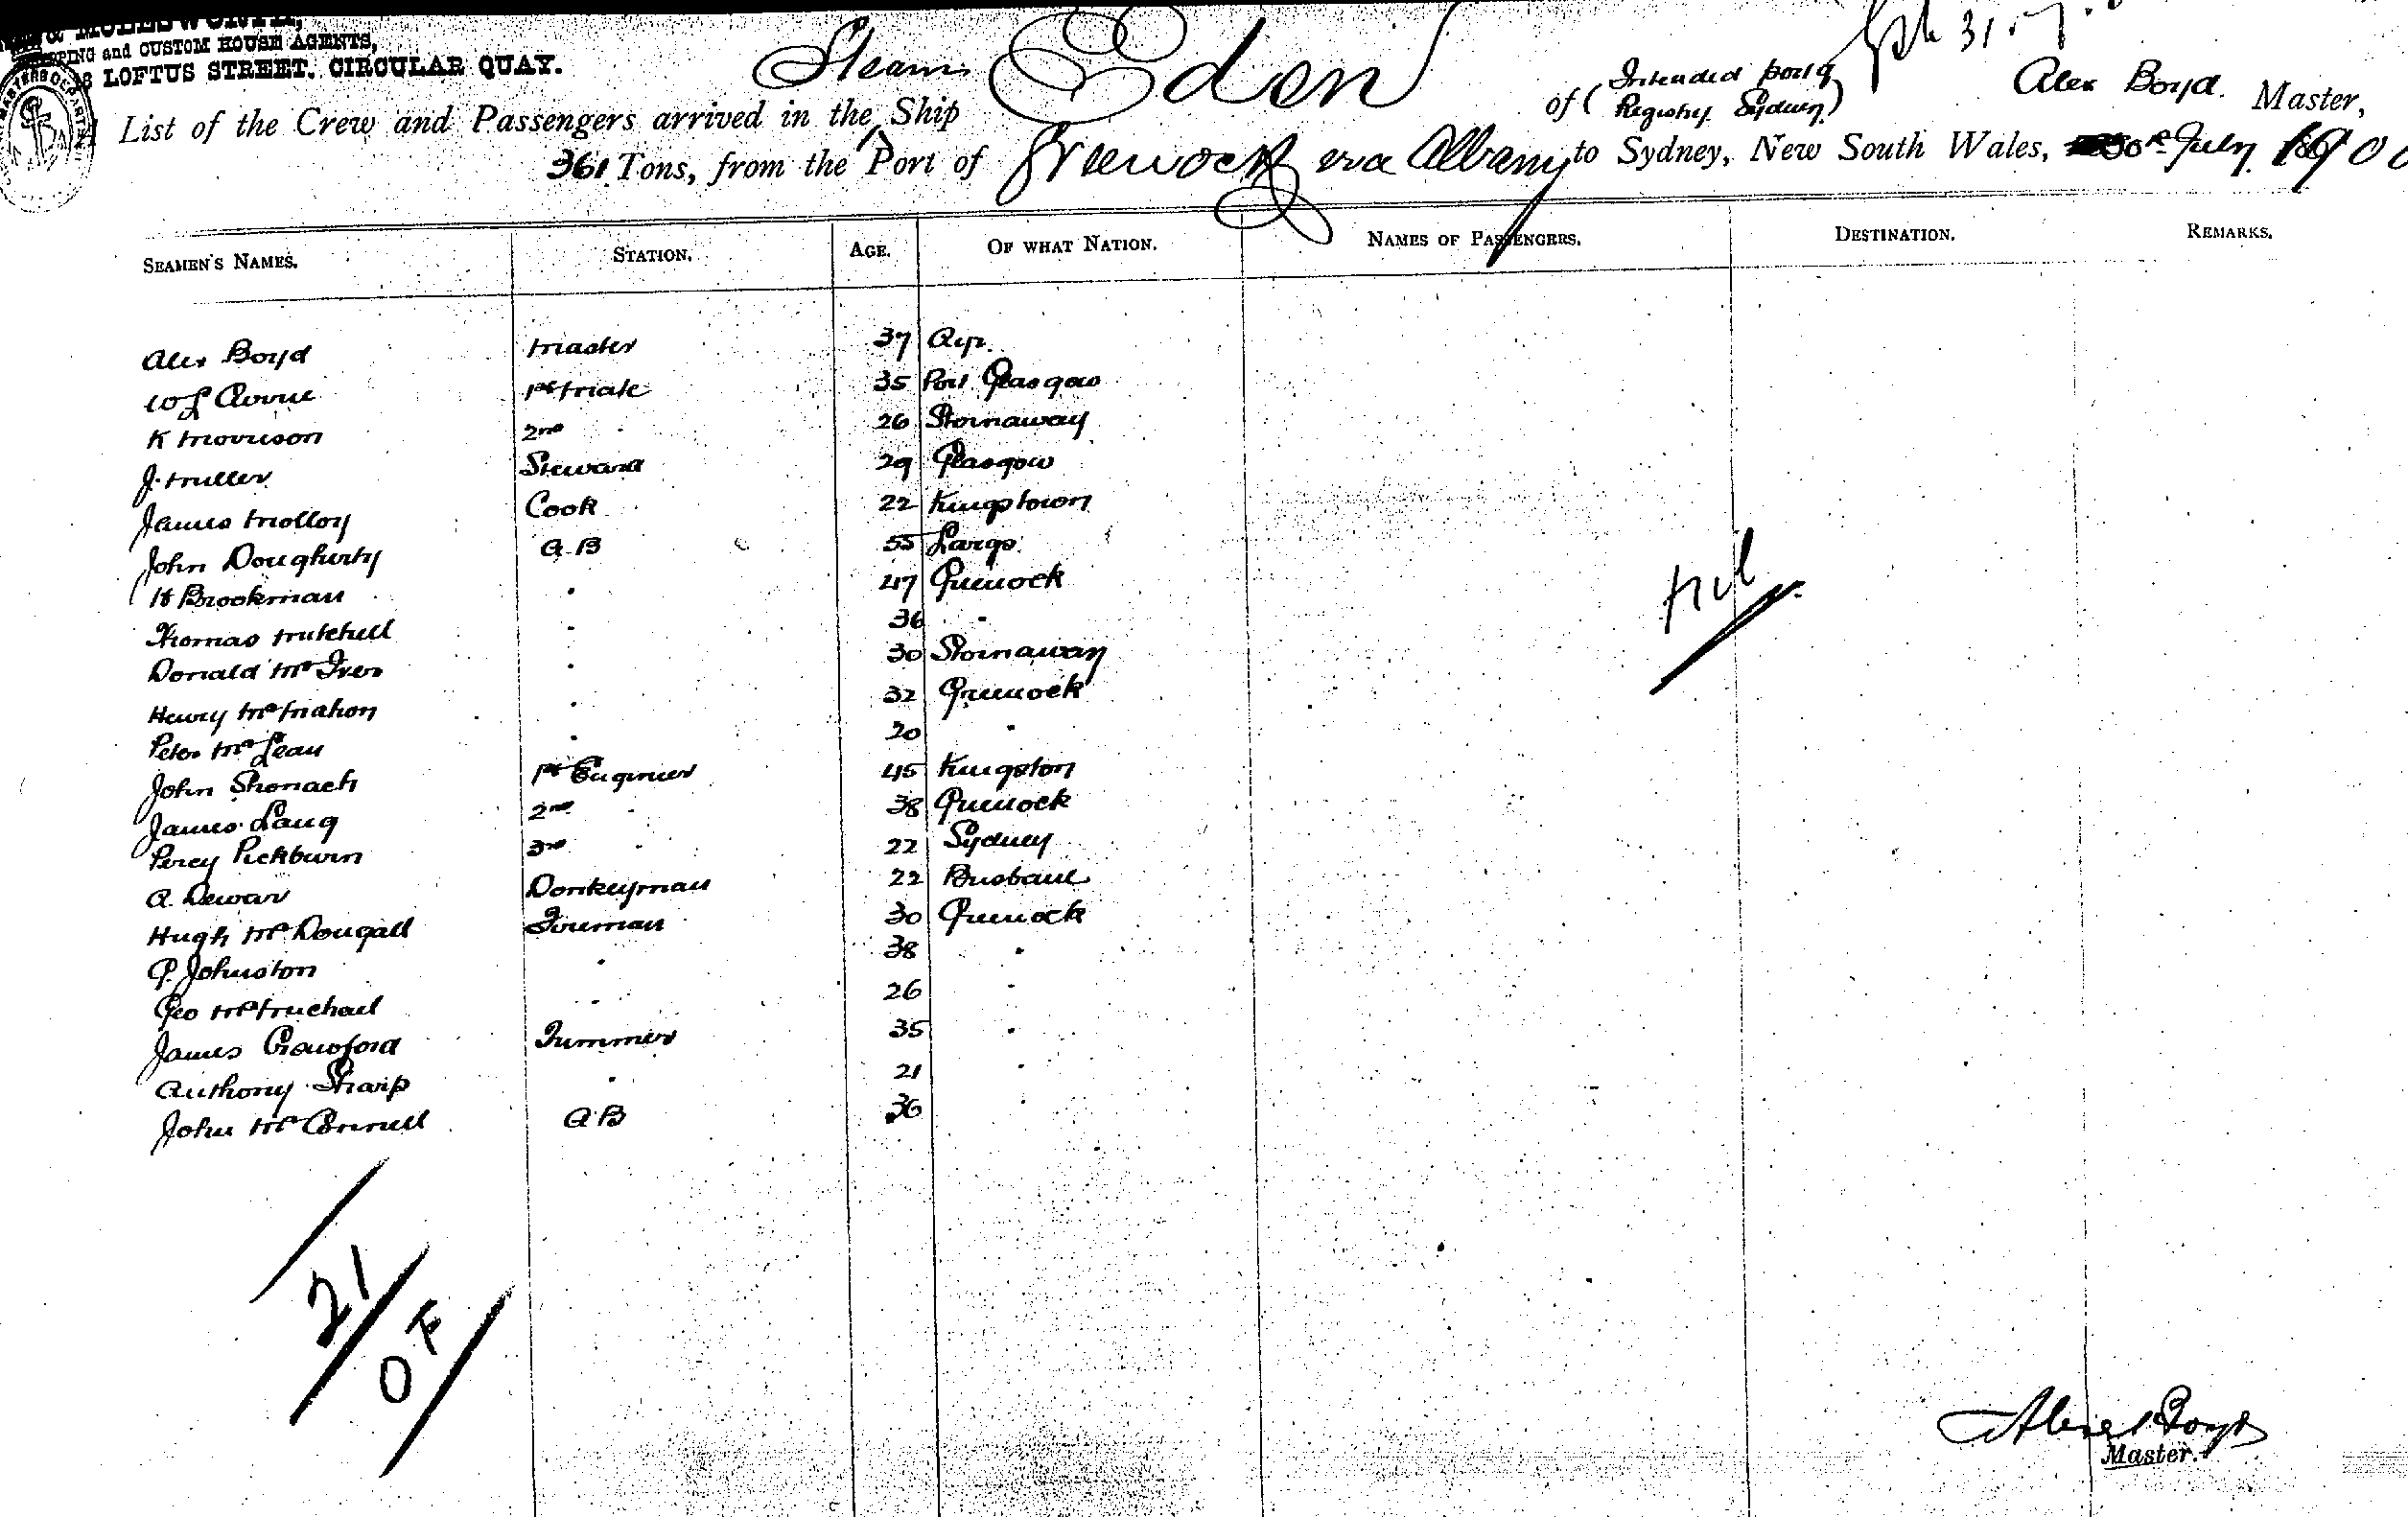 SHIPPING and CUSTOM HOUSE AGENTS,
LOFTUS STREET. CIRCULAR QUAY.
31
Steam Eden of (Intended port of Registry Sydney) Alex Boyd. Master,
List of the Crew and Passengers arrived in the Ship
361 Tons, from the Port of Greenock via Albany to Sydney, New South Wales, 30th July 1900
SEAMEN'S NAMES. STATION. AGE. OF WHAT NATION. NAMES OF PASSENGERS. DESTINATION. REMARKS.
Alex Boyd Master 37 Ayr.
W J 1st Mate 35 Port Glasgow
K Morrison 2nd " 26 Stornaway
J. Miller Steward 29 Glasgow
James Molloy Cook 22 Kingstown
John Dougherty A.B 55 Largs
H Brookman " 47 Greenock
Thomas Mitchell " 36 "
Donald McIver " 30 Stornaway
Henry McMahon " 32 Greenock
Peter McLean " 20 "
John Shonach 1st Engineer 45 Kingston
James Lang 2nd " 38 Greenock
Percy Pickburn 3rd " 22 Sydney
A. Dewar Donkeyman 22 Brisbane
Hugh McDougall Fireman 30 Greenock
P. Johnston " 38 "
Geo McMichael " 26 "
James Crawford Trimmer 35 "
Anthony Sharp " 21 "
John McConnell A B 36 "
Nil
21
OF
Alex Boyd
Master.